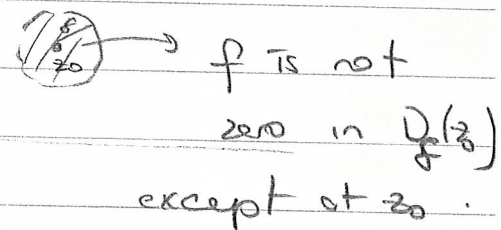 δ
z0
f is not
zero in Dδ(z0)
except at z0.